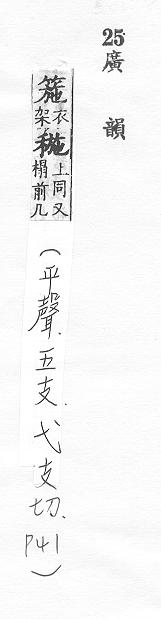 25廣韻
箷衣架椸上同又榻前几（平聲、五支、弋支切、P41）